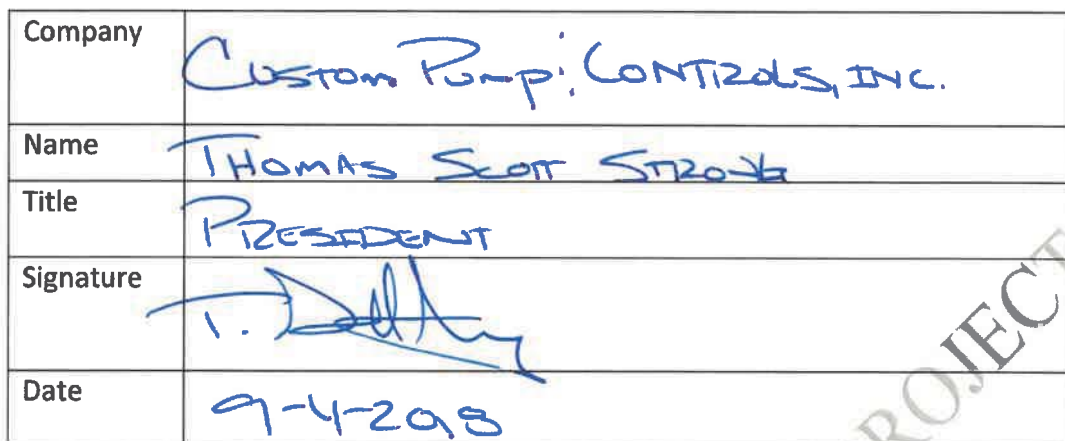 Company Custom Pump: CONTROLS, INC.
Name THOMAS SCOTT STRONG
Title PRESIDENT
Signature T.
Date 9-4-2018
ROJECT